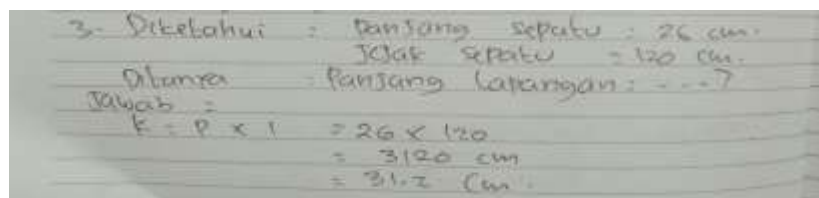 3. Diketahui : Panjang sepatu : 26 cm.
Jejak sepatu = 120 cm.
Ditanya : Panjang Lapangan : - - - ?
Jawab :
K = P x l = 26 x 120
= 3120 cm
= 31.2 Cm.